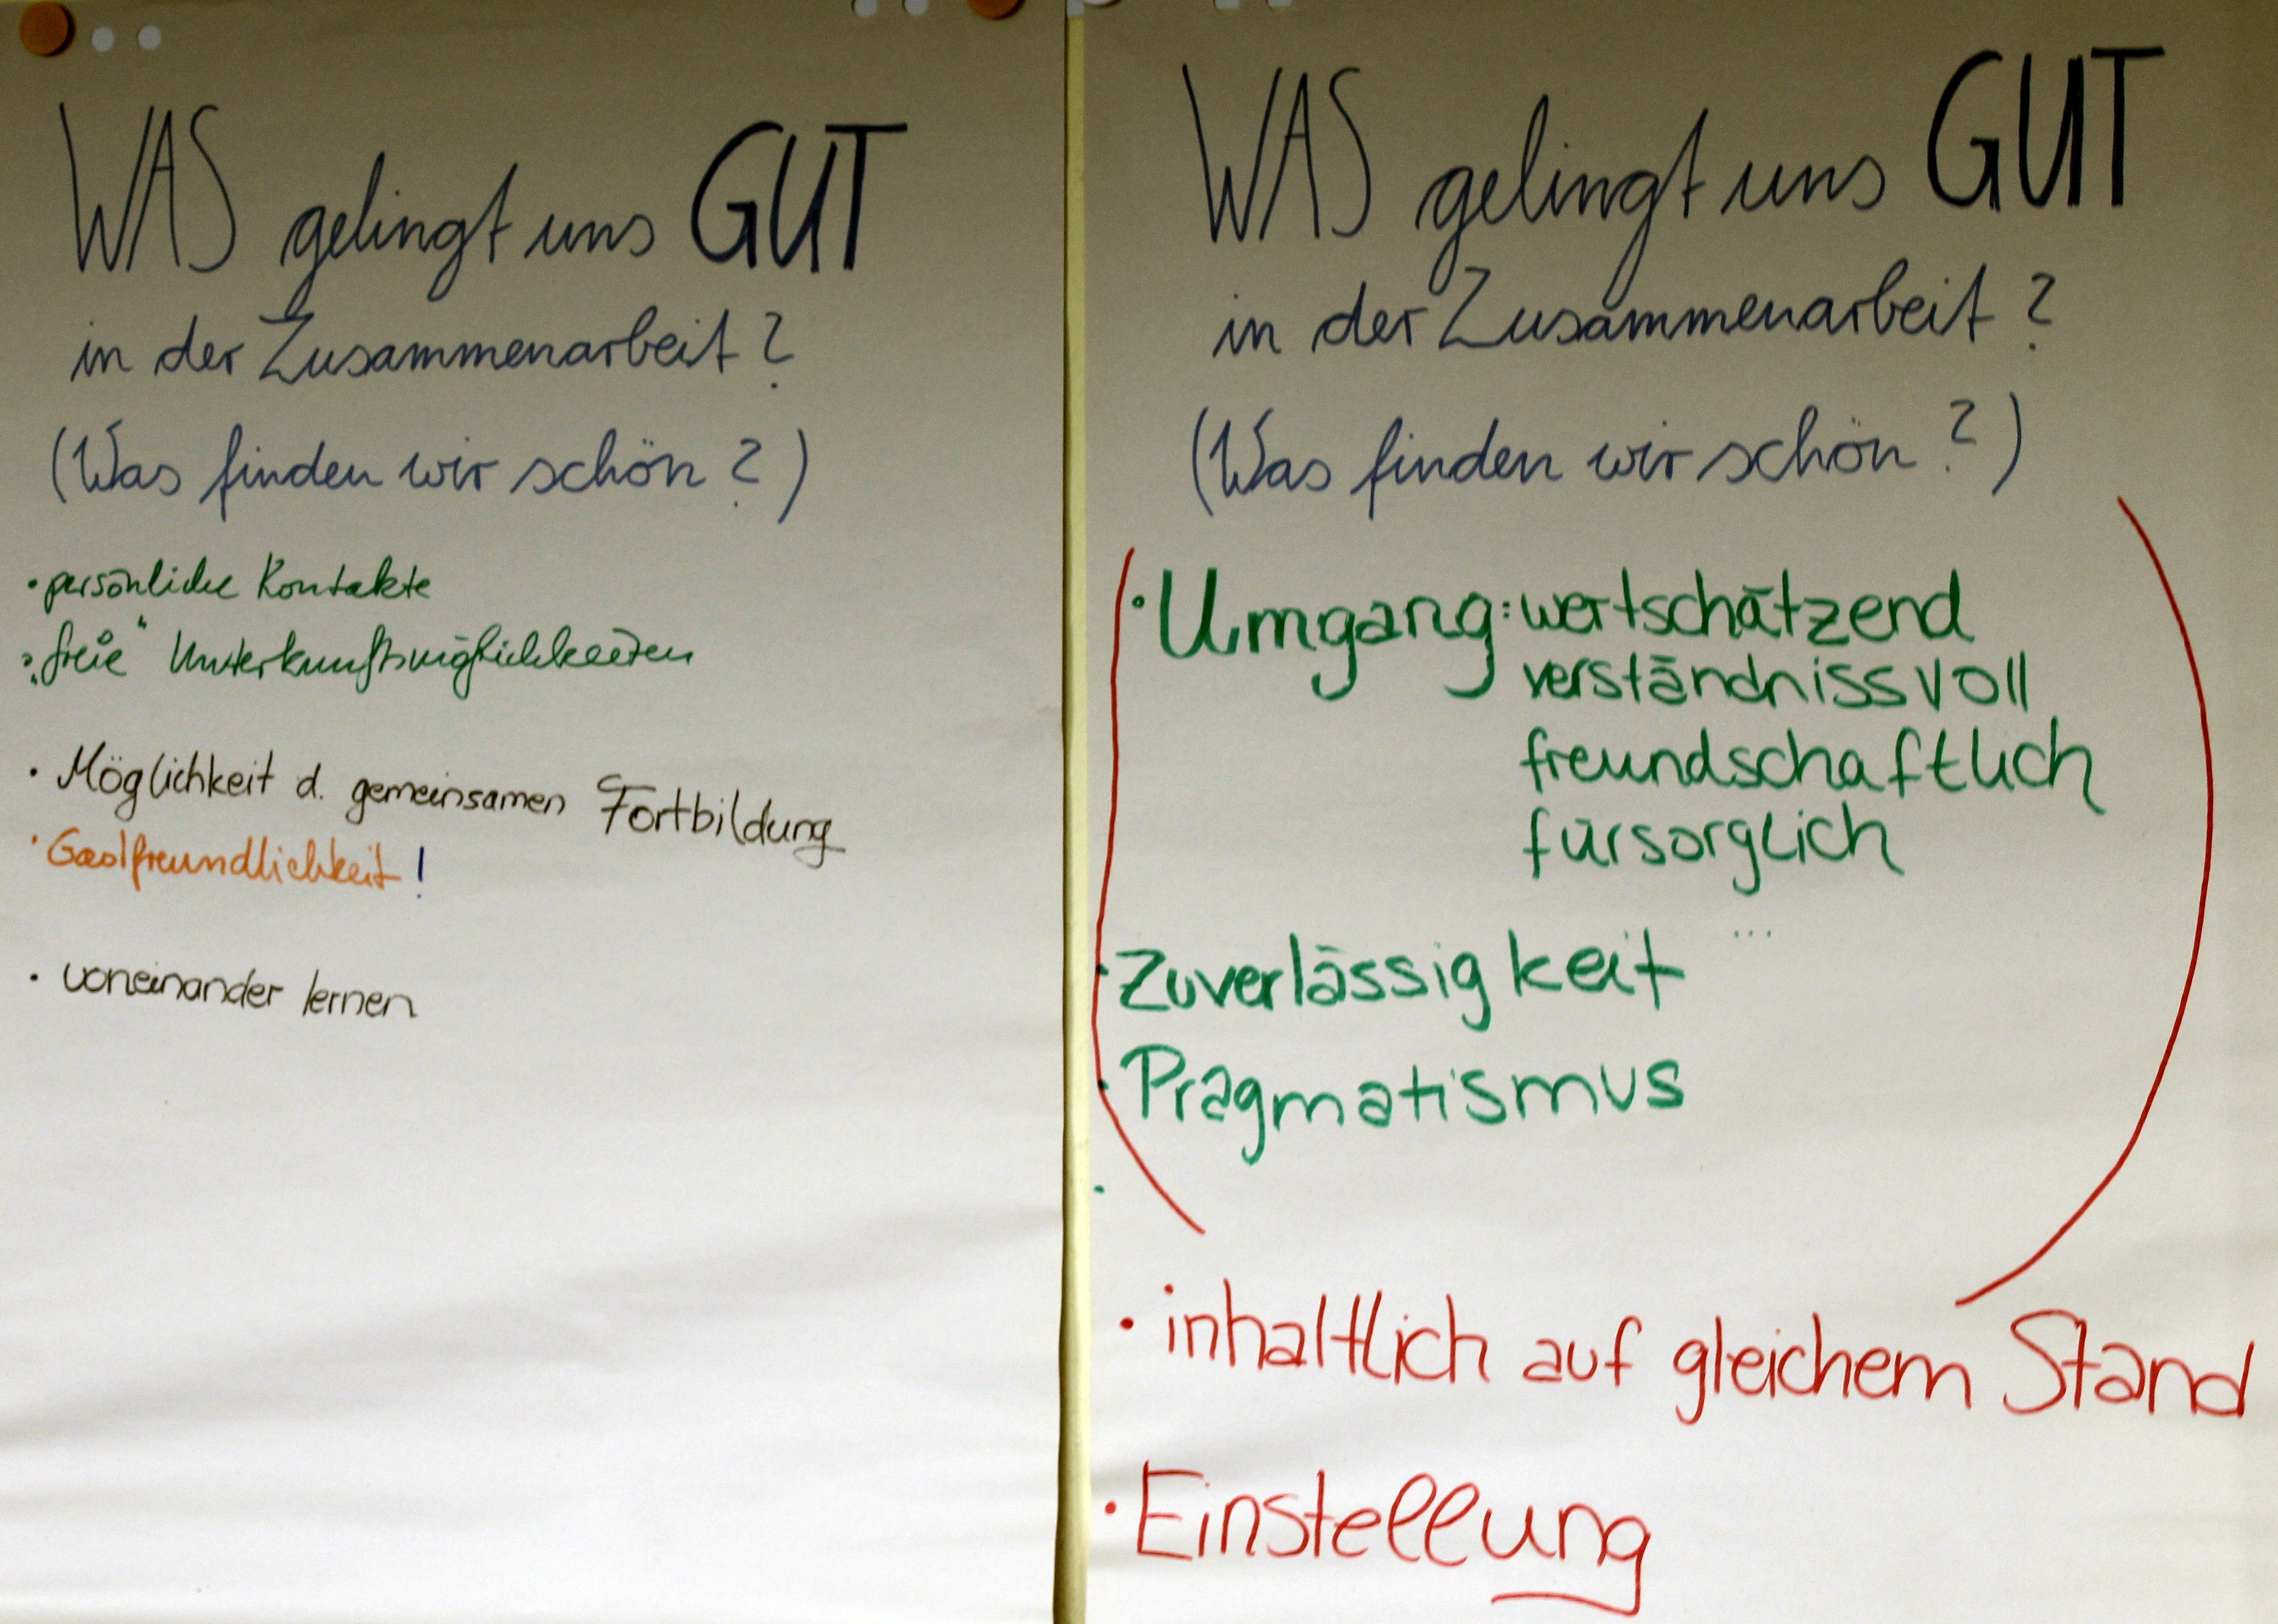 WAS gelingt uns GUT
in der Zusammenarbeit?
(Was finden wir schön?)
• persönliche Kontakte
• „freie“ Unterkunftsmöglichkeiten
• Möglichkeit d. gemeinsamen Fortbildung
• Gastfreundlichkeit!
• voneinander lernen
WAS gelingt uns GUT
in der Zusammenarbeit?
(Was finden wir schön?)
• Umgang: wertschätzend
verständnissvoll
freundschaftlich
fürsorglich
...
• Zuverlässigkeit
• Pragmatismus
•
• inhaltlich auf gleichem Stand
• Einstellung